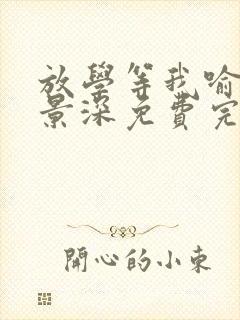 放學等我喻
景深免費完
開心的小東